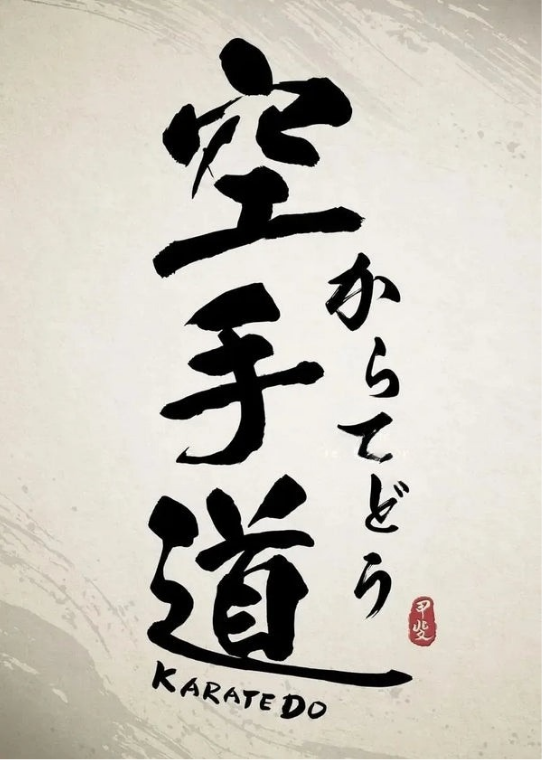 空手道
からてどう
甲斐
KARATE DO